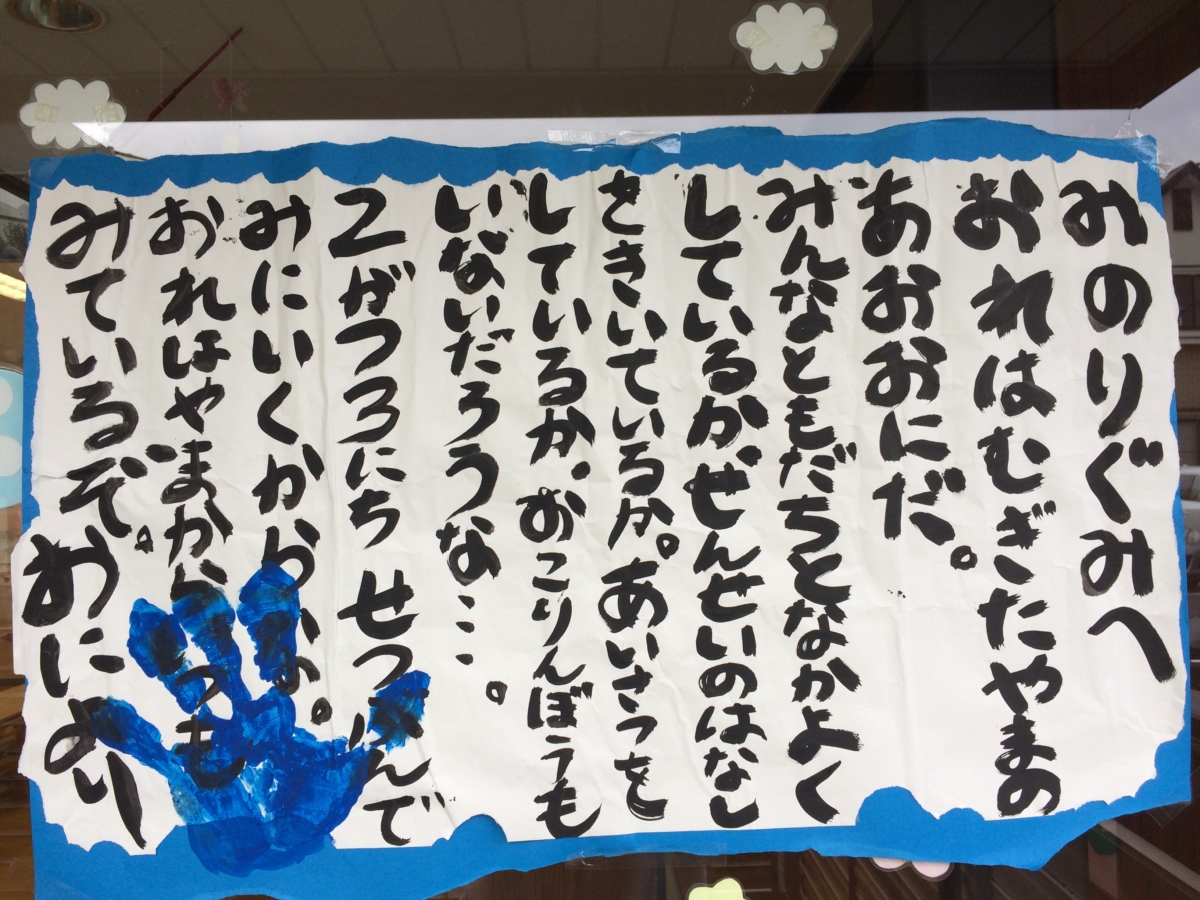 みのりぐみへ
おれはむぎたやまの
あおおにだ。
みんなともだちとなかよく
しているか、せんせいのはなし
をきいているか。あいさつを
しているか、おこりんぼうも
いないだろうな…。
2がつ3にち せつぶんで
みにいくからな。
おれはやまからいつも
みているぞ。おにより